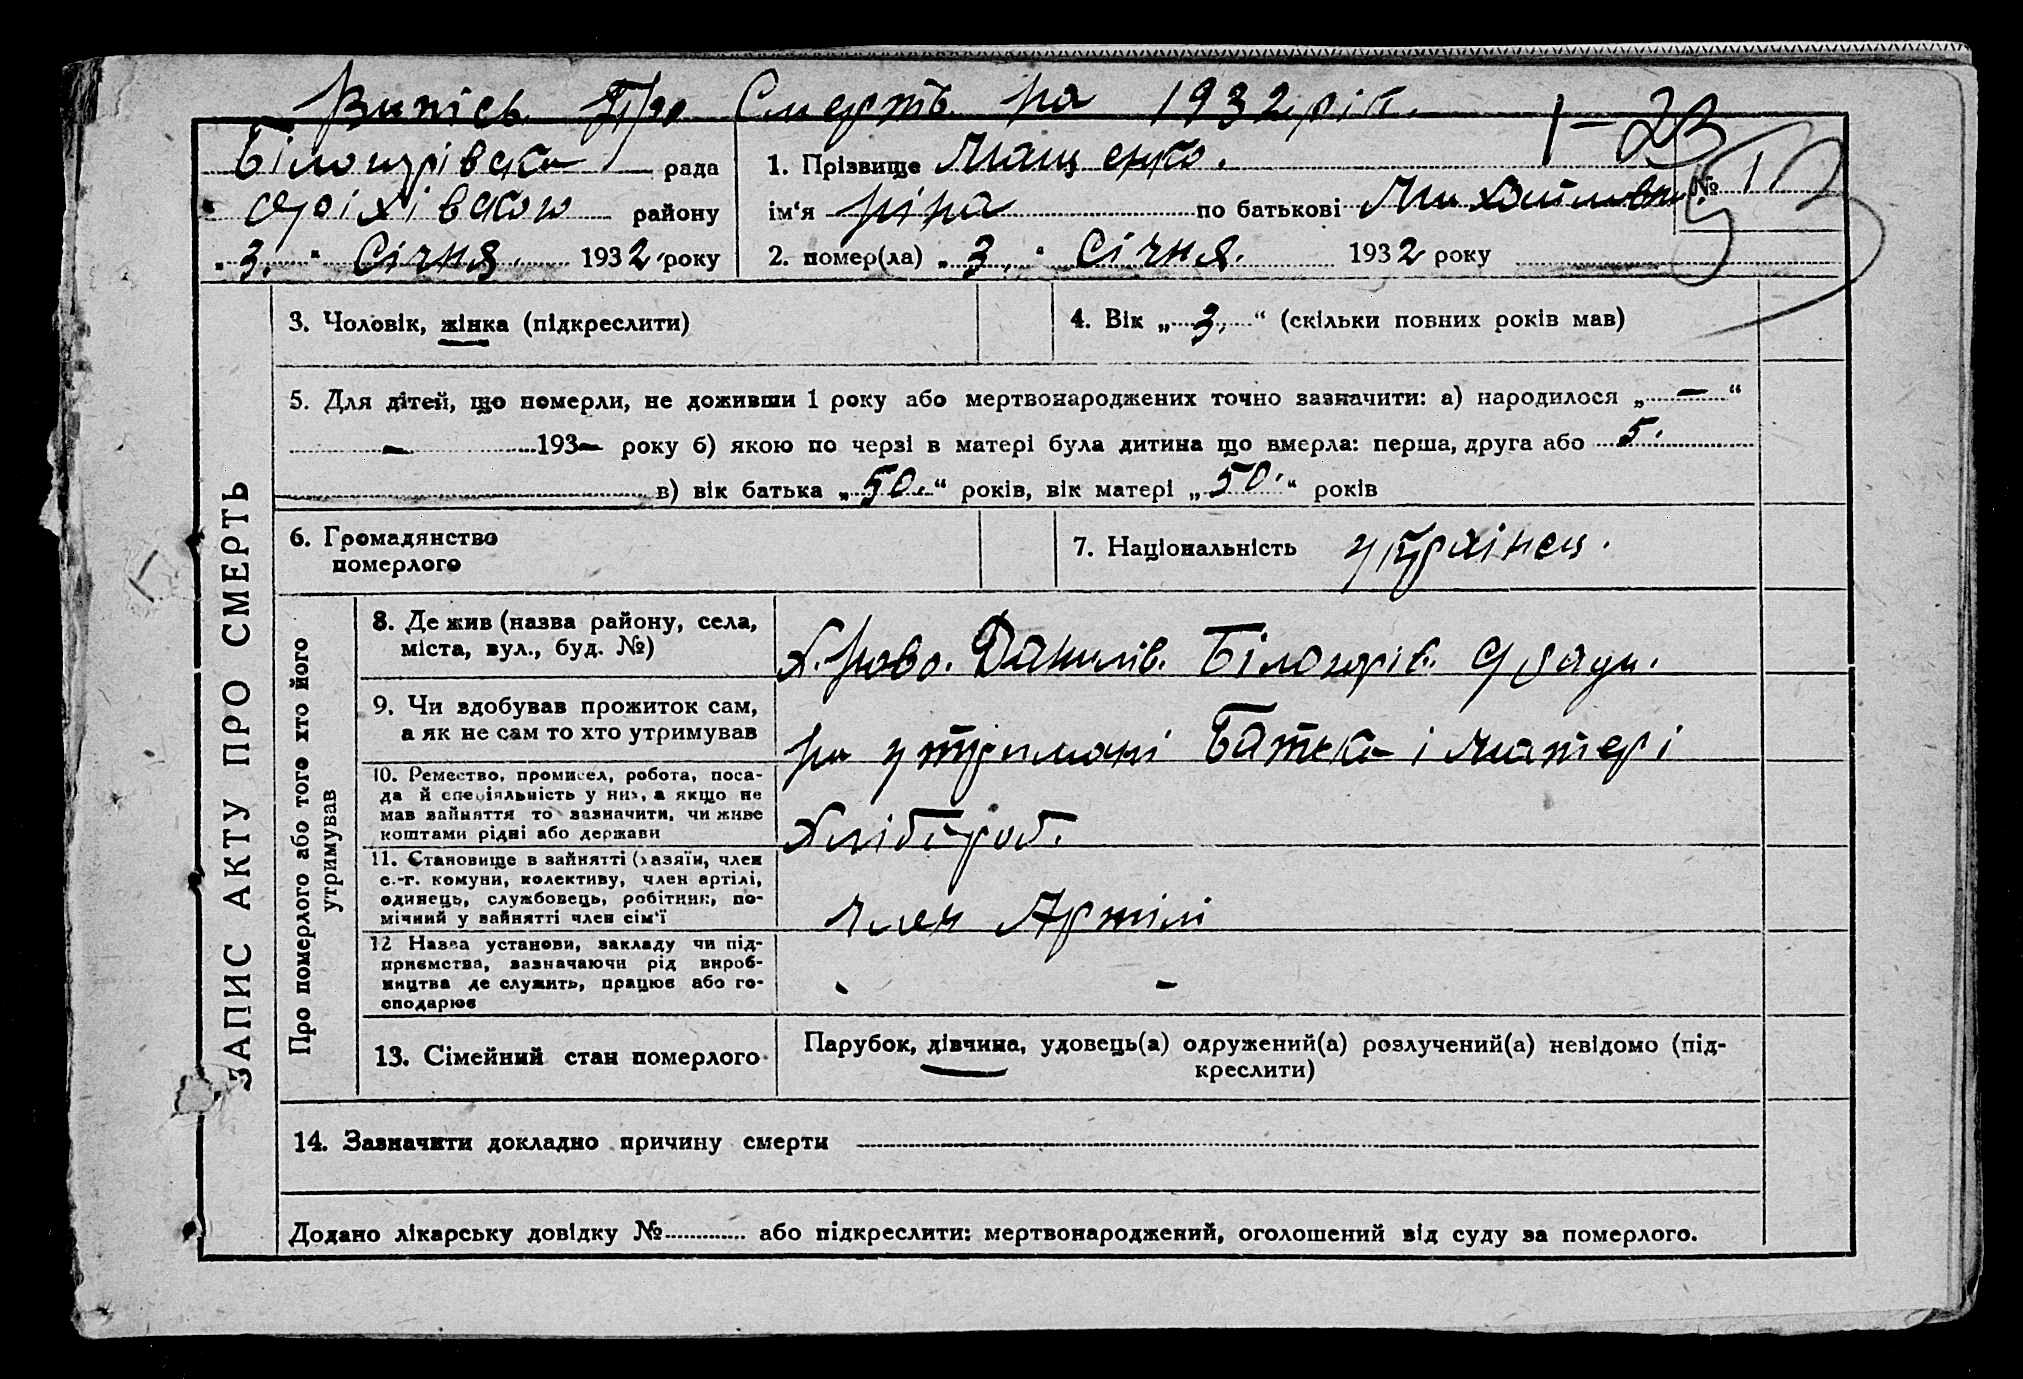 Випісь Про Смерть на 1932 рік. 1-23
Білогорівська рада
Оріхівського району
„3.“ Січня 1932 року
1. Прізвище Мащенко.
ім'я Ніна по батькові Михайлівна
№ 1
53
2. помер(ла) „3.“ Січня. 1932 року
ЗАПИС АКТУ ПРО СМЕРТЬ
3. Чоловік, жінка (підкреслити)
4. Вік „3.“ (скільки повних років мав)
5. Для дітей, що померли, не доживши 1 року або мертвонароджених точно зазначити: а) народилося „—“
— 193— року б) якою по черзі в матері була дитина що вмерла: перша, друга або 5.
в) вік батька „50.“ років, вік матері „50.“ років
6. Громадянство
померлого
7. Національність українец.
Про померлого або того хто його
утримував
8. Де жив (назва району, села,
міста, вул., буд. №)
Х. Ново. Данилів. Білогорів.
9. Чи здобував прожиток сам,
а як не сам то хто утримував
на утримані Батька і матері
10. Ремество, промисел, робота, поса-
да й спеціяльність у них, а якщо не
мав зайняття то зазначити, чи живе
коштами рідні або держави
Хлібороб.
11. Становище в зайнятті (хазяїн, член
с.-г. комуни, колективу, член артілі,
одинець, службовець, робітник, по-
мічний у зайнятті член сім'ї
член Артілі
12 Назва установи, закладу чи під-
приємства, зазначаючи рід вироб-
ництва де служить, працює або го-
сподарює
- -
13. Сімейний стан померлого
Парубок, дівчина, удовець(а) одружений(а) розлучений(а) невідомо (під-
креслити)
14. Зазначити докладно причину смерти
Додано лікарську довідку № або підкреслити: мертвонароджений, оголошений від суду за померлого.